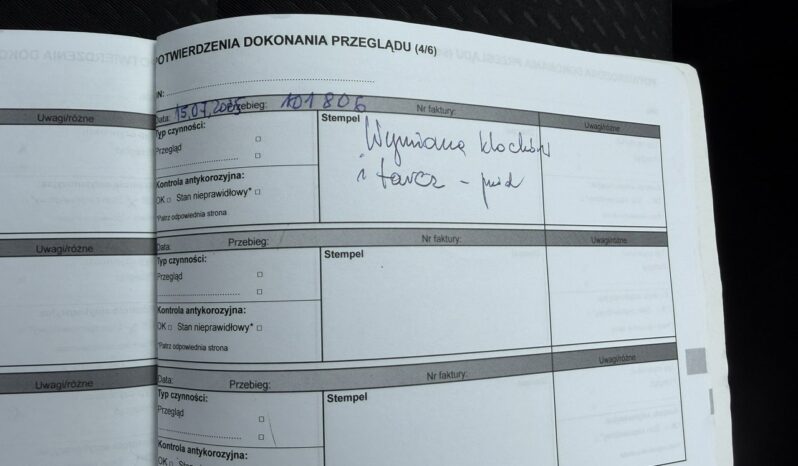 POTWIERDZENIA DOKONANIA PRZEGLĄDU (4/6)
Uwagi/różne
Data: 15.07.2025 Przebieg: 101806 Nr faktury: Uwagi/różne
Typ czynności:
Przegląd
Kontrola antykorozyjna:
OK Stan nieprawidłowy*
*Patrz odpowiednia strona
Stempel
Wymiana klocków
i tarcz - przód
Uwagi/różne
Data: Przebieg: Nr faktury: Uwagi/różne
Typ czynności:
Przegląd
Kontrola antykorozyjna:
OK Stan nieprawidłowy*
*Patrz odpowiednia strona
Stempel
Uwagi/różne
Data: Przebieg: Nr faktury: Uwagi/różne
Typ czynności:
Przegląd
Kontrola antykorozyjna:
Stempel